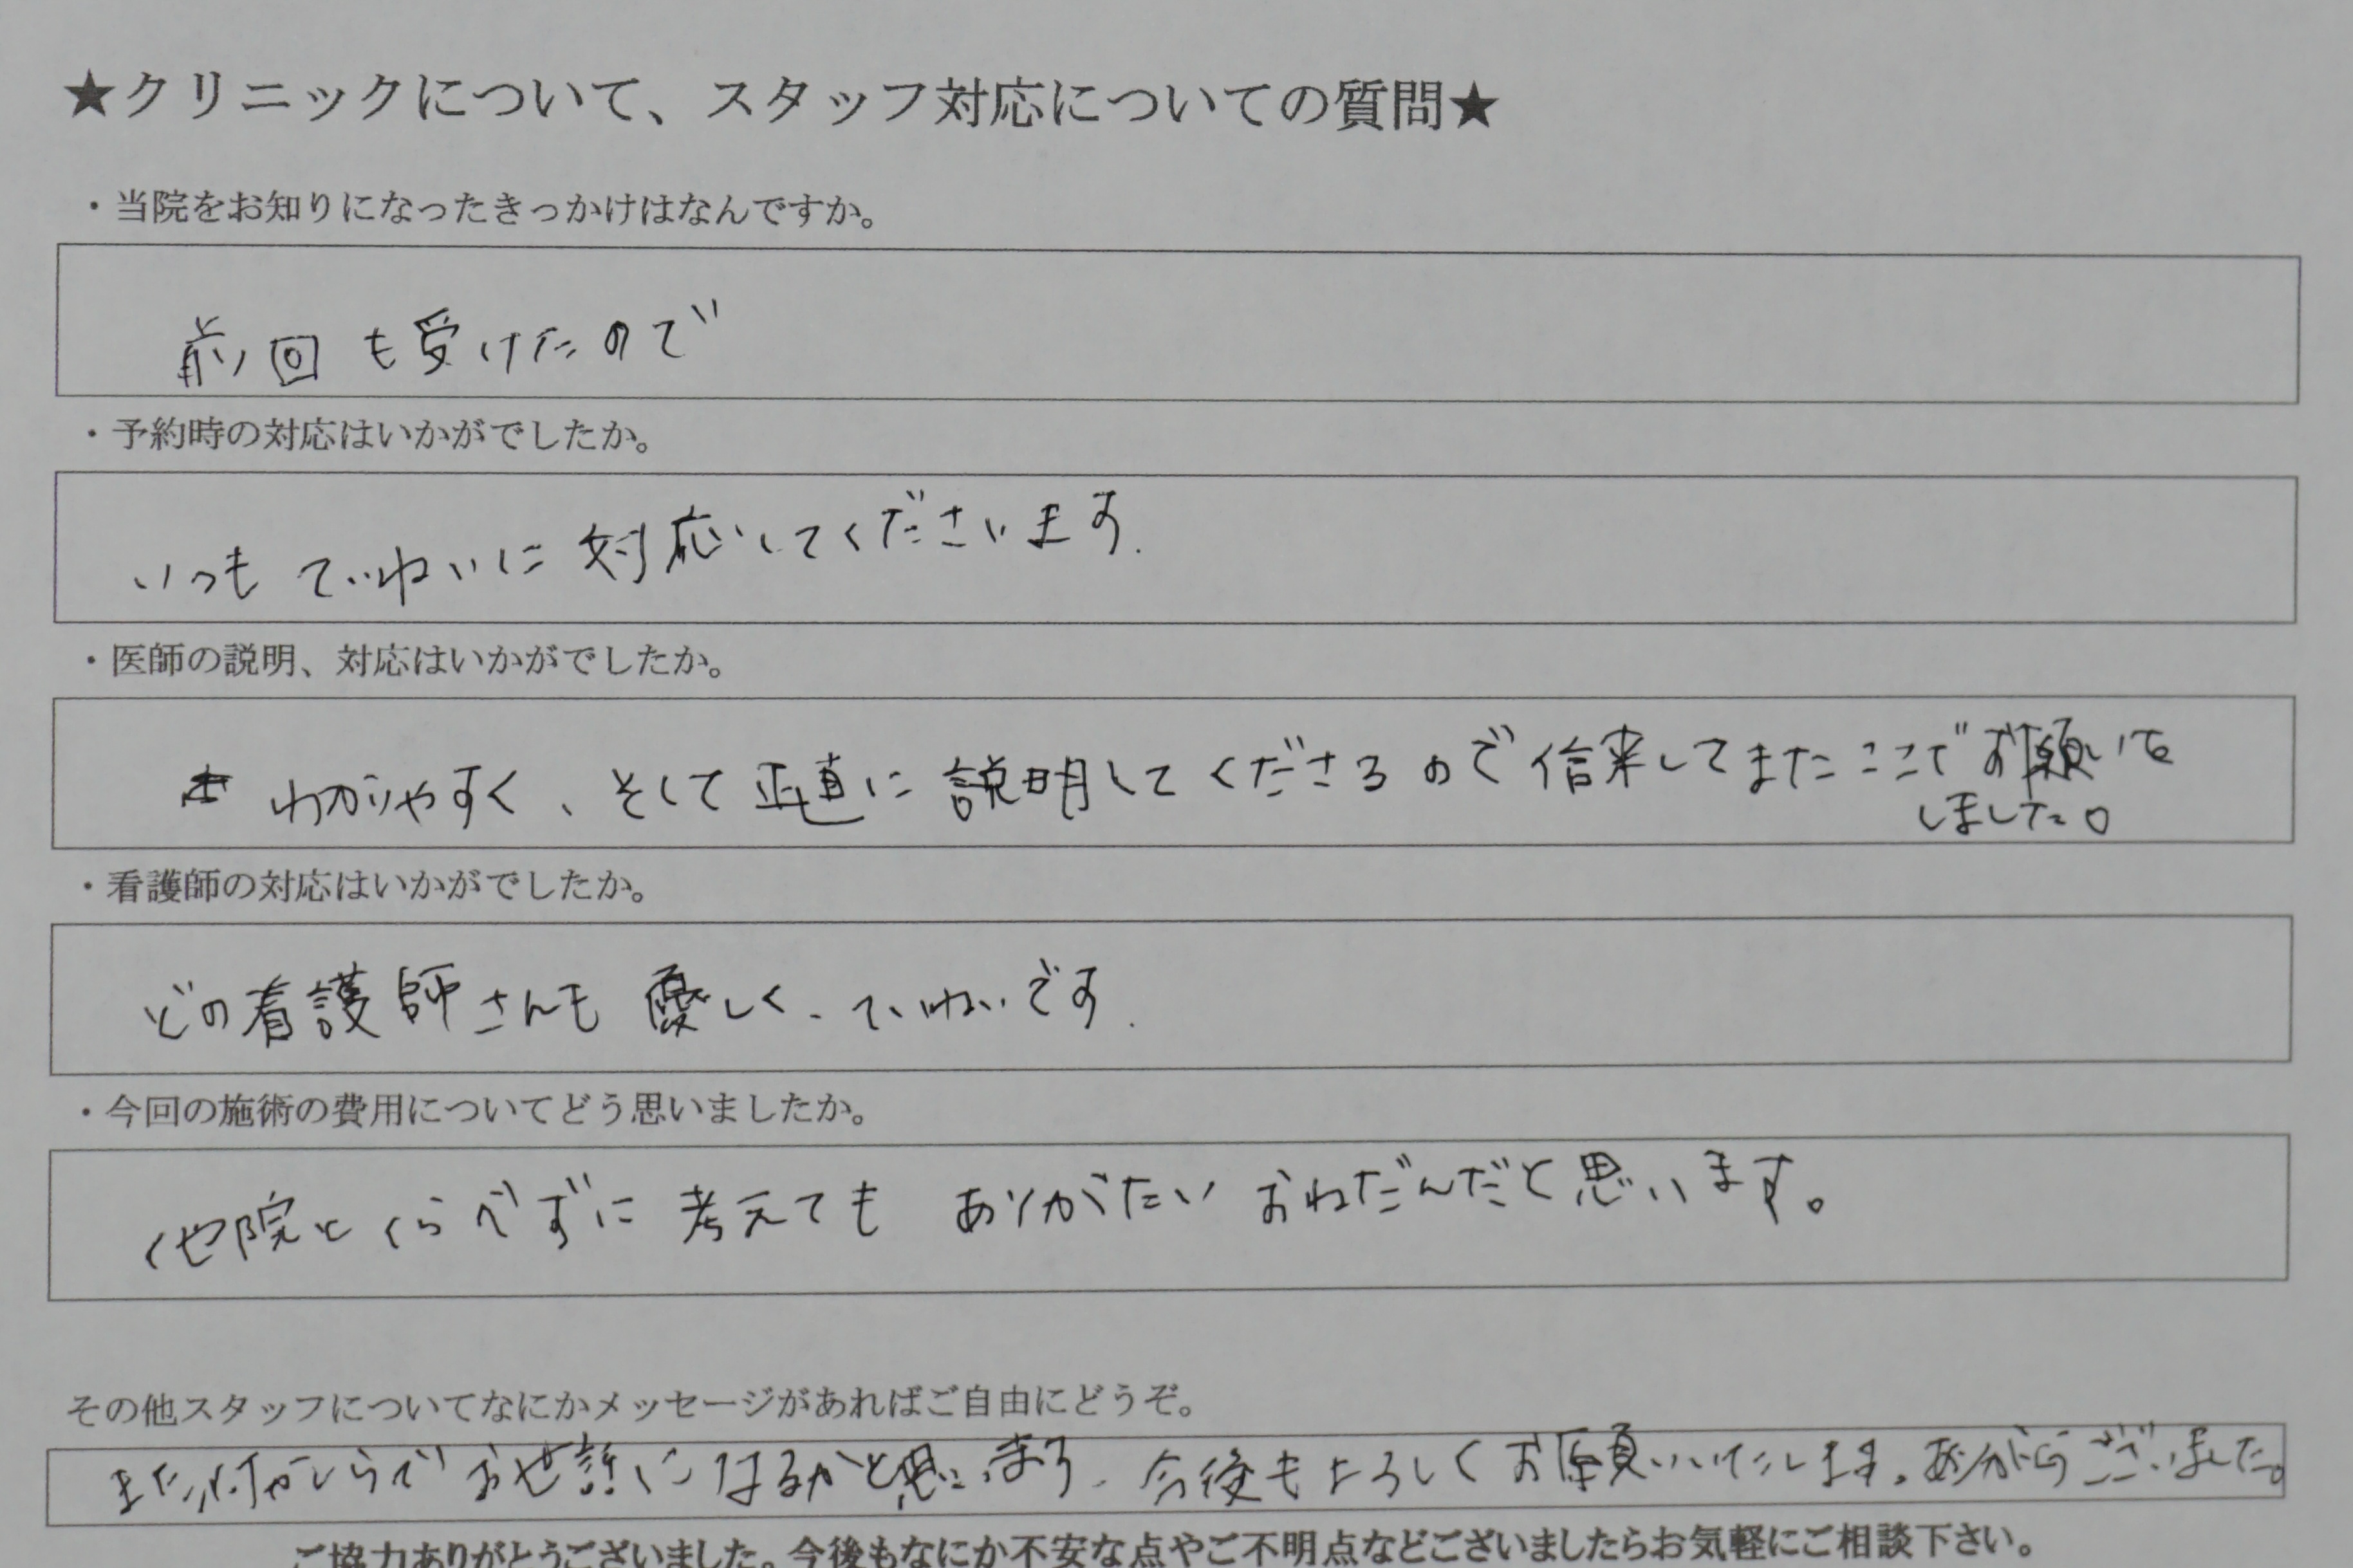 ★クリニックについて、スタッフ対応についての質問★
・当院をお知りになったきっかけはなんですか。
前回も受けたので
・予約時の対応はいかがでしたか。
いつもていねいに対応してくださいます.
・医師の説明、対応はいかがでしたか。
わかりやすく、そして正直に説明してくださるので信来してまたここでお願いを
しました。
・看護師の対応はいかがでしたか。
どの看護師さんも優しく、ていねいです.
・今回の施術の費用についてどう思いましたか。
他院とくらべずに考えてもありがたいおねだんだと思います。
その他スタッフについてなにかメッセージがあればご自由にどうぞ。
また お世話になるかと思います、今後もよろしくお願いいたします。ありがとうございました。
ご協力ありがとうございました。今後もなにか不安な点やご不明点などございましたらお気軽にご相談下さい。